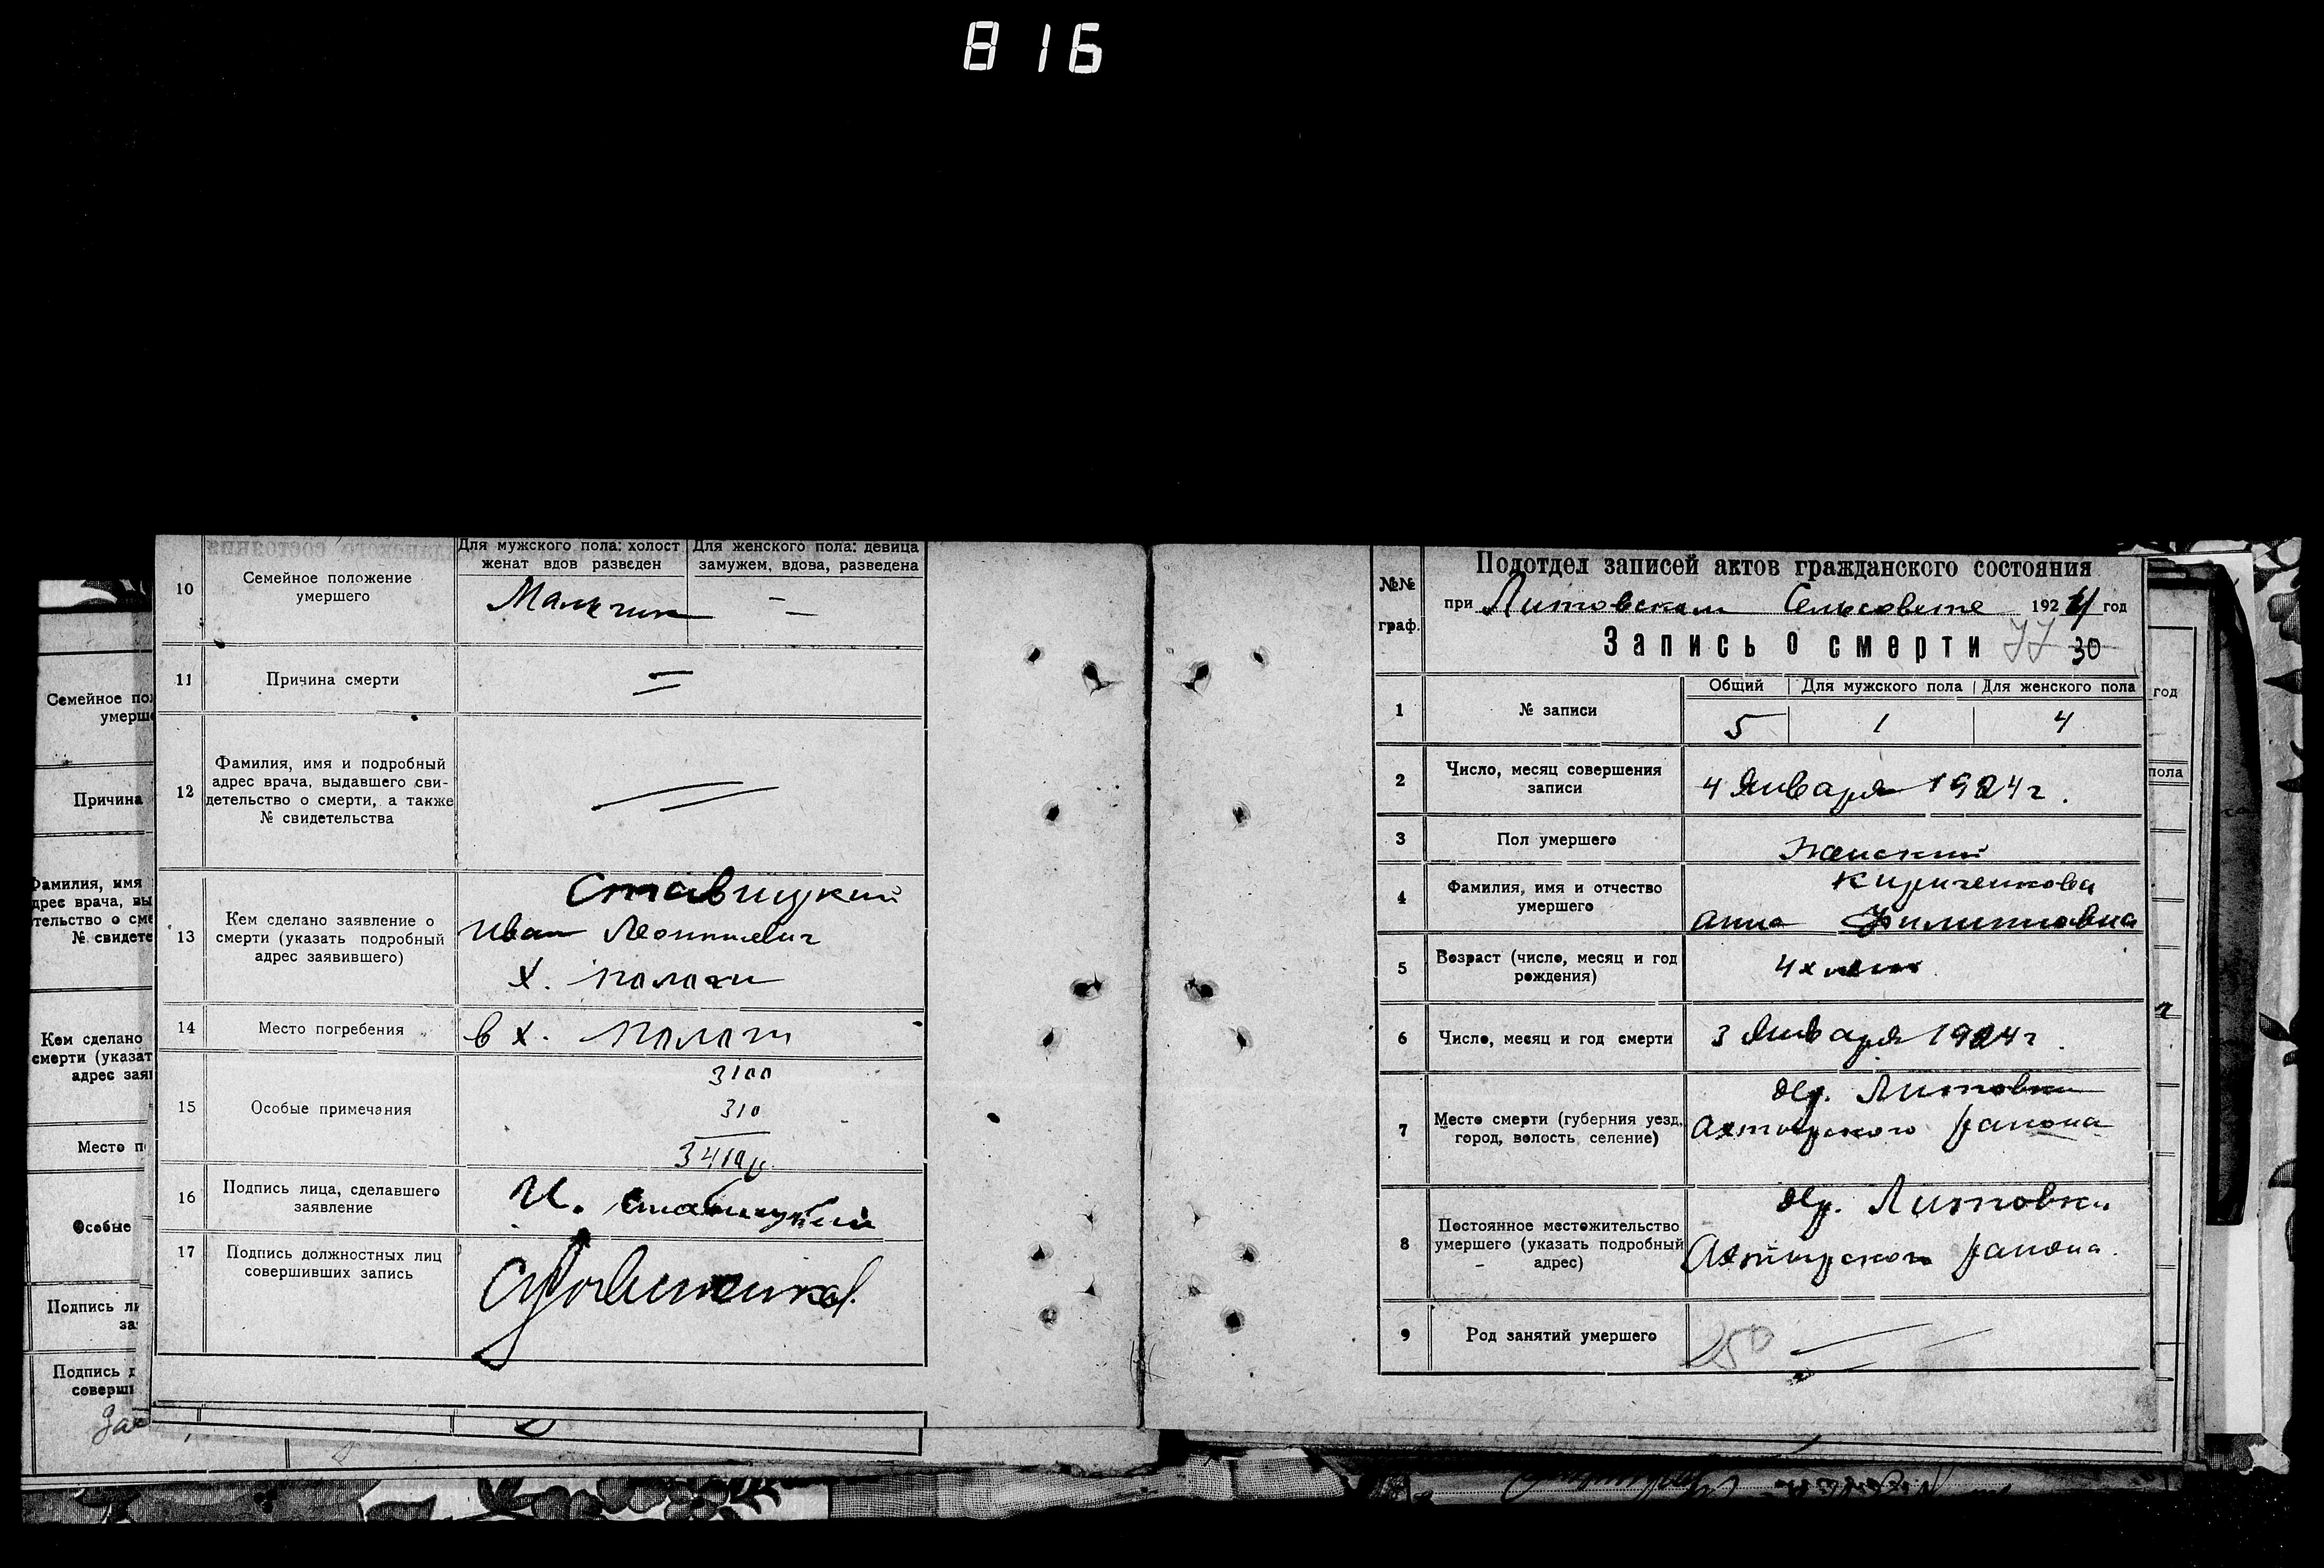 816
10
Семейное положение
умершего
Для мужского пола: холост
женат вдов разведен
Для женского пола: девица
замужем, вдова, разведена
Мальчик
11
Причина смерти
12
Фамилия, имя и подробный
адрес врача, выдавшего сви-
детельство о смерти, а также
№ свидетельства
13
Кем сделано заявление о
смерти (указать подробный
адрес заявившего)
Ставицкий
Иван
х.
14
Место погребения
в х.
15
Особые примечания
3100
310
3410 р.
16
Подпись лица, сделавшего
заявление
И. Ставицкий
17
Подпись должностных лиц
совершивших запись
Семейное пол
умерше
Причина
Фамилия, имя
дрес врача, вы
тельство о сме
№ свидете
Кем сделано
смерти (указат
адрес заяв
Место п
Особые
Подпись ли
за
Подпись д
соверши
№№
граф.
Подотдел записей актов гражданского состояния
при Литовском Сельсовете 1924 год
Запись о смерти
30
1
№ записи
Общий
Для мужского пола
Для женского пола
5
1
4
2
Число, месяц совершения
записи
4 Января 1924 г.
3
Пол умершего
Женский
4
Фамилия, имя и отчество
умершего
Кириченкова
Анна Филиповна
5
Возраст (число, месяц и год
рождения)
4х
6
Число, месяц и год смерти
3 Января 1924 г
7
Место смерти (губерния уезд,
город, волость, селение)
дер. Литовки
Ахтырского района
8
Постоянное местожительство
умершего (указать подробный
адрес)
дер. Литовки
Ахтырского района.
9
Род занятий умершего
250
год
пола